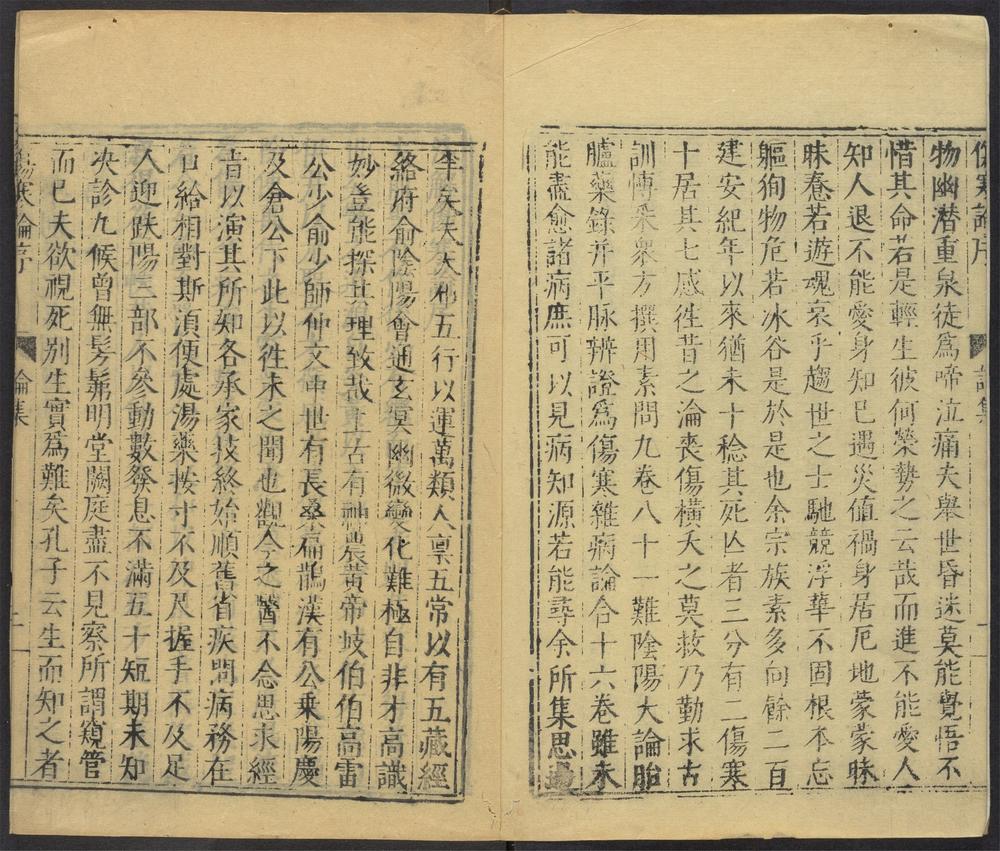 傷寒論序
論集
物幽潛重泉徒爲啼泣痛夫舉世昏迷莫能覺悟不
惜其命若是輕生彼何榮勢之云哉而進不能愛人
知人退不能愛身知己遇災值禍身居厄地蒙蒙昧
昧惷若遊魂哀乎趨世之士馳競浮華不固根本忘
軀狥物危若冰谷至於是也余宗族素多向餘二百
建安紀年以來猶未十稔其死亾者三分有二傷寒
十居其七感徃昔之淪喪傷橫夭之莫救乃勤求古
訓博采衆方撰用素問九卷八十一難陰陽大論胎
臚藥錄幷平脉辨證爲傷寒雜病論合十六卷雖未
能盡愈諸病庶可以見病知源若能尋余所集思過
半矣夫天布五行以運萬類人稟五常以有五藏經
絡府俞陰陽會通玄冥幽微變化難極自非才高識
妙豈能探其理致哉上古有神農黃帝岐伯伯高雷
公少俞少師仲文中世有長桑扁鵲漢有公乗陽慶
及倉公下此以徃未之聞也觀今之醫不念思求經
旨以演其所知各承家技終始順舊省疾問病務在
口給相對斯湏便處湯藥按寸不及尺握手不及足
人迎趺陽三部不參動數發息不滿五十短期未知
决診九候曾無髣髴明堂闕庭盡不見察所謂窺管
而已夫欲視死别生實爲難矣孔子云生而知之者
傷寒論序
論集
二